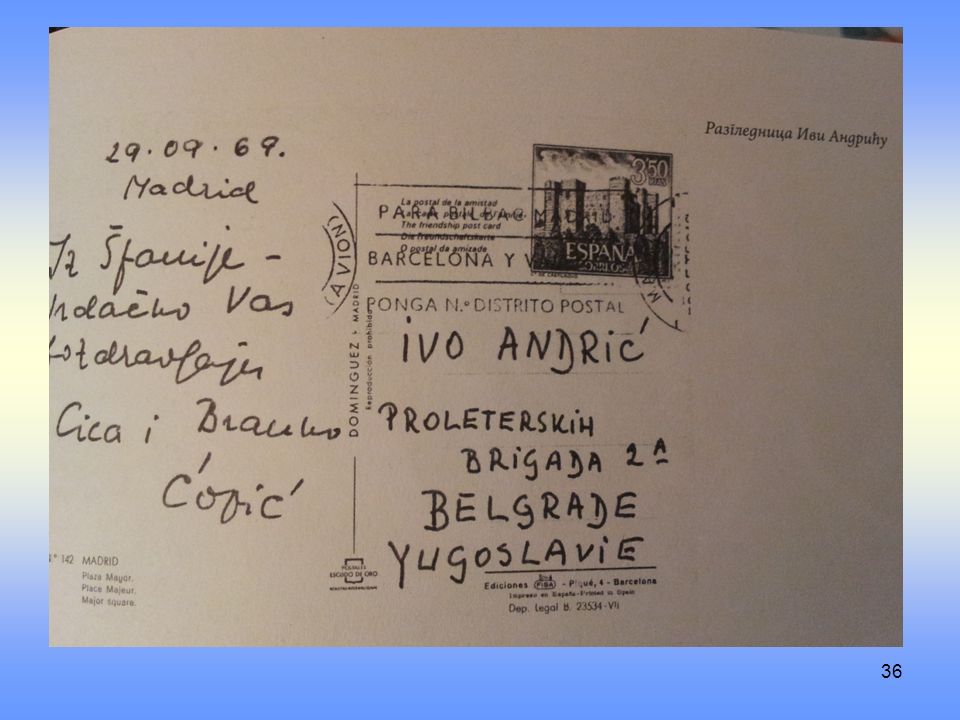 Разгледница Иви Андрићу
29.09.69.
Madrid
Iz Španije -
srdačno Vas
pozdravljaju
Cica i Branko
Ćopić
Nº 142 MADRID
Plaza Mayor.
Place Majeur.
Major square.
AVION
La postal de la amistad
The friendship post card
Die Freundschaftskarte
O postal da amizade
PARA BILBAO MADRID
BARCELONA Y V
PONGA N.º DISTRITO POSTAL
3'50
PTAS
ESPAÑA
CORREOS
DOMINGUEZ - MADRID
Reproducción prohibida
IVO ANDRIĆ
PROLETERSKIH
BRIGADA 2A
BELGRADE
YUGOSLAVIE
POSTALES
ESCUDO DE ORO
Ediciones FISA - Piqué, 4 - Barcelona
Impreso en España-Printed in Spain
Dep. Legal B. 23534-VII
36